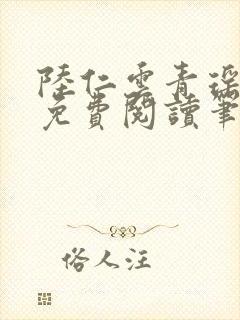 陸仁雲青瑶
免費閱讀筆
俗人注